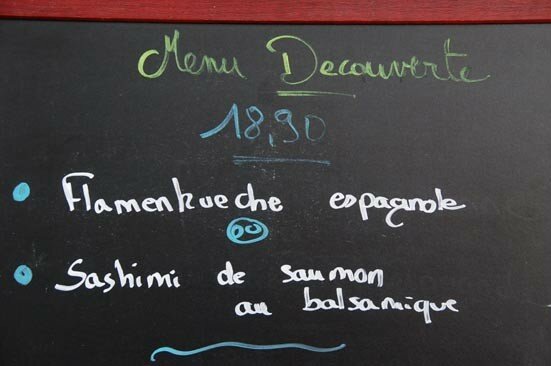 Menu Decouverte
18,90
Flamenkueche espagnole
ou
Sashimi de saumon
au balsamique